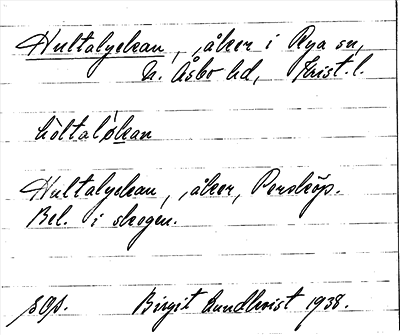 Hultalyckan, åker i Rya sn,
N. Åsbo hd, Krist. l.
hòltalýkan
Hultalyckan, åker, Perstorp.
Bel. i skogen.
sop. Birgit Lundkvist 1938.